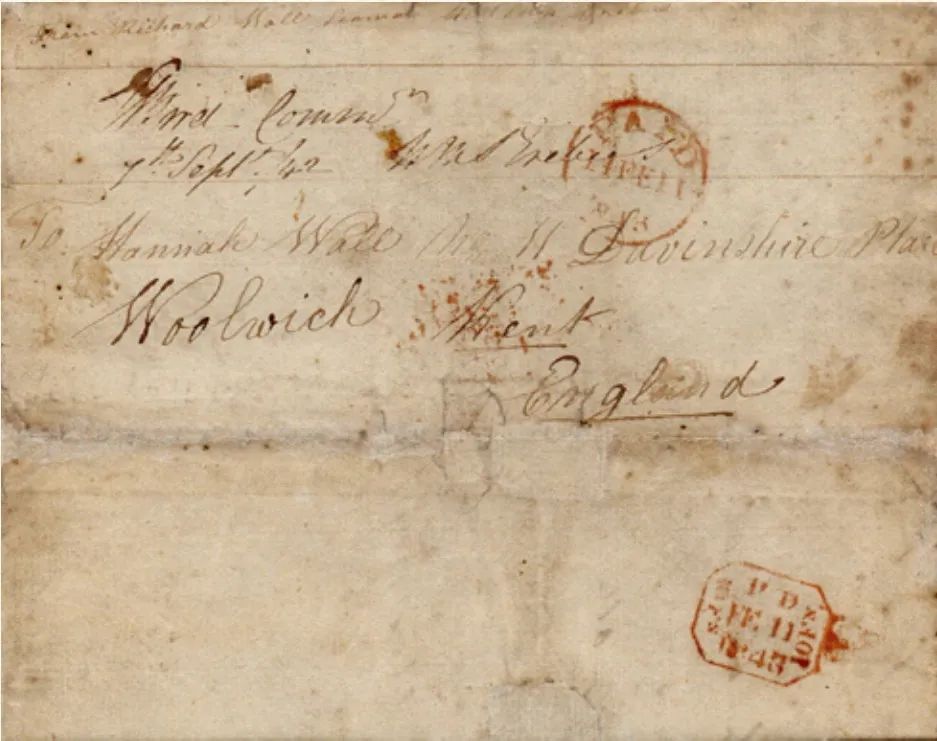 From Richard Wall Seaman
Comm^n
7th Sept^r /42 HMS Erebus
PAID
11 FE 11
To Hannah Wall No 11 Davinshire Place
Woolwich Kent
England
PD
FE 11
1843